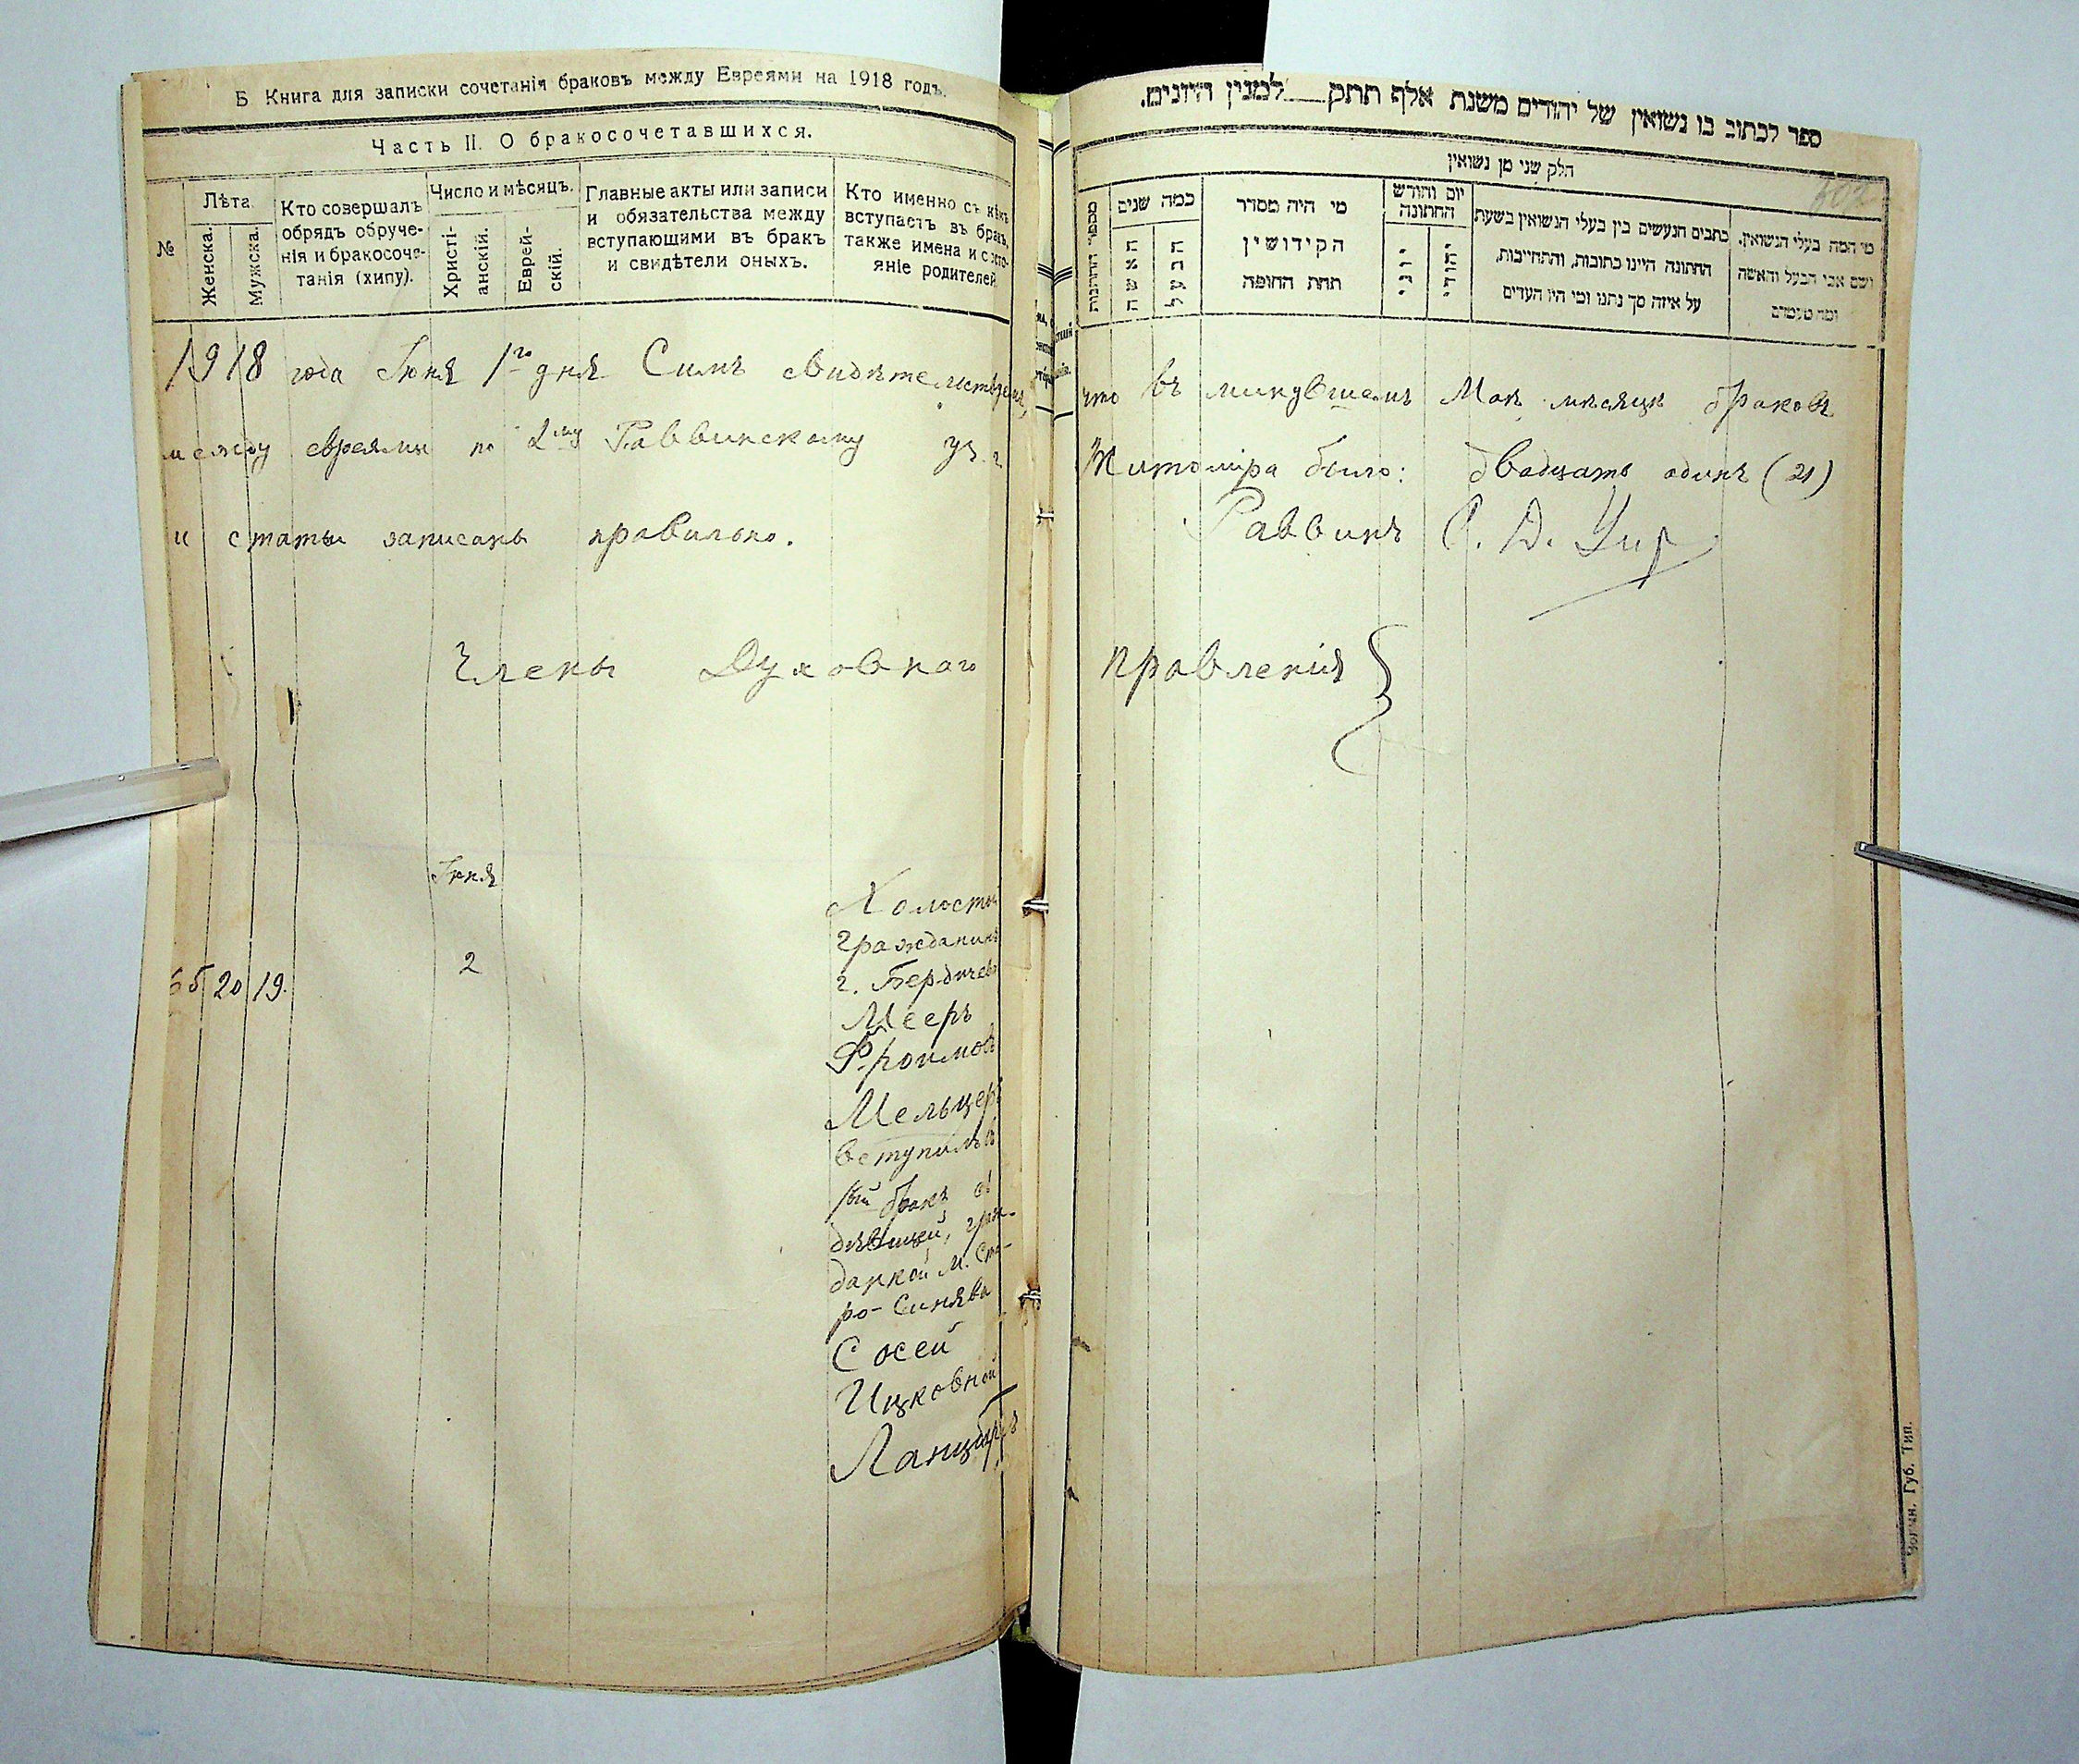 Б. Книга для записки сочетанія браковъ между Евреями на 1918 годъ.
Часть II. О бракосочетавшихся.
№
Лѣта.
Женска.
Мужска.
Кто совершалъ
обрядъ обруче-
нія и бракосоче-
танія (хипу).
Число и мѣсяцъ.
Христі-
анскій.
Еврей-
скій.
Главные акты или записи
и обязательства между
вступающими въ бракъ
и свидѣтели оныхъ.
Кто именно съ кѣмъ
вступаетъ въ бракъ,
также имена и состо-
яніе родителей
1918 года Іюня 1го дня Симъ свидѣтельствуемъ,
между евреями по 2му Раввинскому уч. г.
и статьи записаны правильно.
Члены Духовнаго
Іюня
65 20 19. 2
Холостой
гражданинъ
г. Бердичева
Мееръ
Фроимовъ
Мельцеръ
вступилъ въ
1ый бракъ съ
дѣвицей, граж-
данкой м. Ста-
ро-Синява
Сосей
Ицковной
ספר לכתוב בו נשואין של יהודים משנת אלף תתק___למנין היונים.
חלק שני מן נשואין
602
מספר החתנות
כמה שנים
האשה
הבעל
מי היה מסדר
הקידושין
תחת החופה
יום וחודש
החתונה
יוני
יהודי
כתבים הנעשים בין בעלי הנשואין בשעת
החתונה היינו כתובות, והתחייבות,
על איזה סך נתנו ומי היו העדים
מי המה בעלי הנשואין,
ושם אבי הבעל והאשה
ומה מעמדם
что въ минувшемъ Маѣ мѣсяцѣ браковъ
Житоміра было: двадцать одинъ (21)
Раввинъ
Правленія
Волын. Губ. Тип.